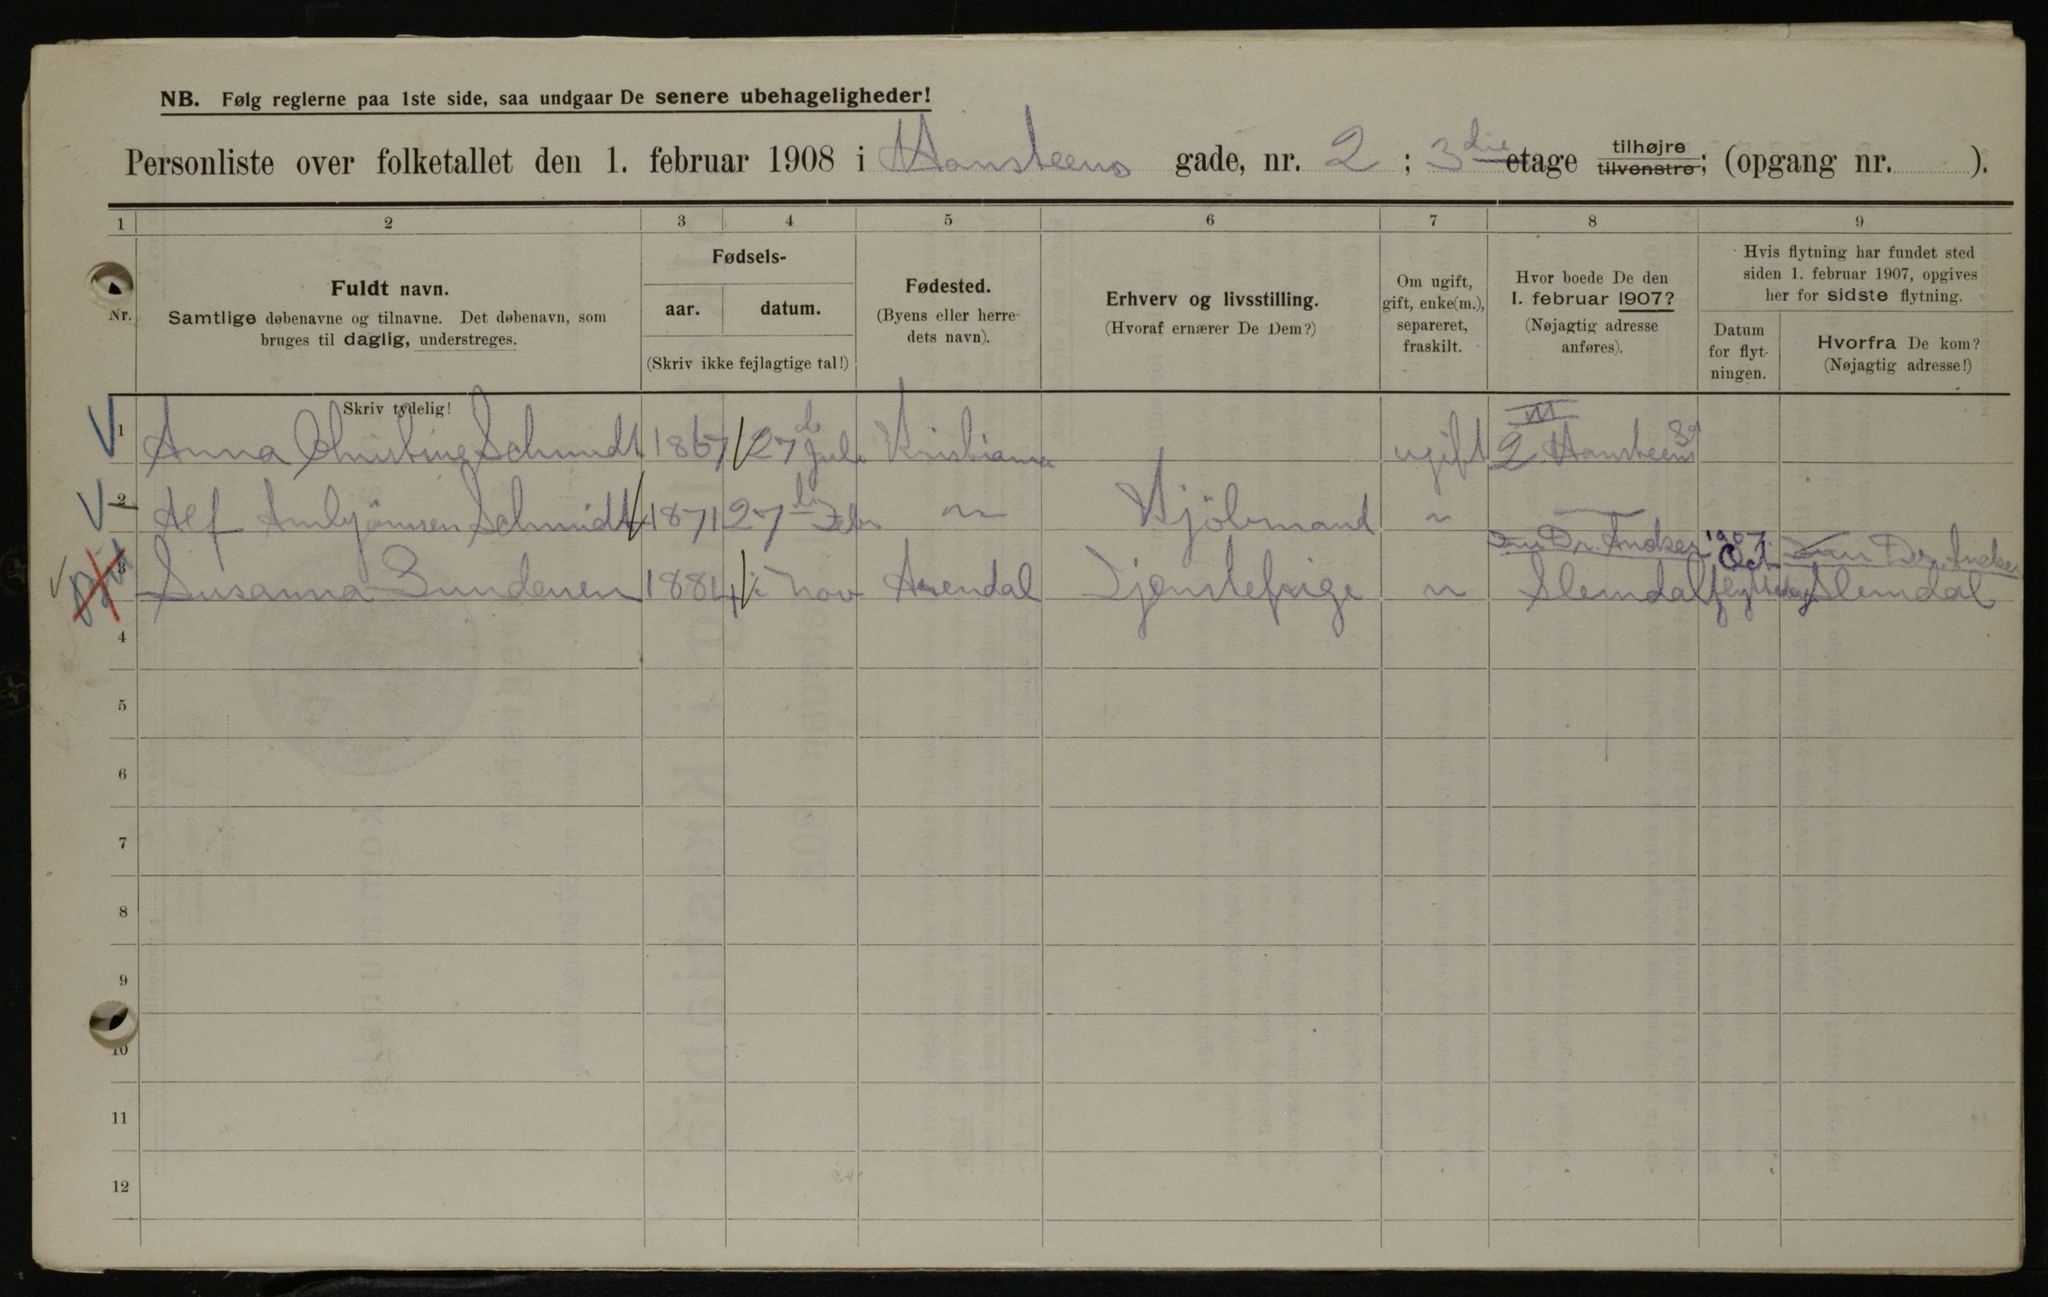 NB. Følg reglerne paa 1ste side, saa undgaar De senere ubehageligheder!
Personliste over folketallet den 1. februar 1908 i Hansteens gade, nr. 2 ; 3die etage tilhøjre tilvenstre; (opgang nr. ).
1 2 3 4 5 6 7 8 9
Nr.
Fuldt navn.
Samtlige døbenavne og tilnavne. Det døbenavn, som
bruges til daglig, understreges.
Skriv tydelig!
Fødsels-
aar. datum.
(Skriv ikke fejlagtige tal!)
Fødested.
(Byens eller herre-
dets navn).
Erhverv og livsstilling.
(Hvoraf ernærer De Dem?)
Om ugift,
gift, enke(m.),
separeret,
fraskilt.
Hvor boede De den
1. februar 1907?
(Nøjagtig adresse
anføres).
Hvis flytning har fundet sted
siden 1. februar 1907, opgives
her for sidste flytning.
Datum
for flyt-
ningen.
Hvorfra De kom?
(Nøjagtig adresse!)
III
1 Anna Christine Schmidt 1867 27 Kristiania ugift 2 Hansteens
2 Alf Schmidt 1871 27 Febr " Kjöbmand "
Dr. 1907 Dr.
3 Susanna 1884 Nov Arendal Tjenestepige " Slemdal Oct flyttedag Slemdal
4
5
6
7
8
9
10
11
12